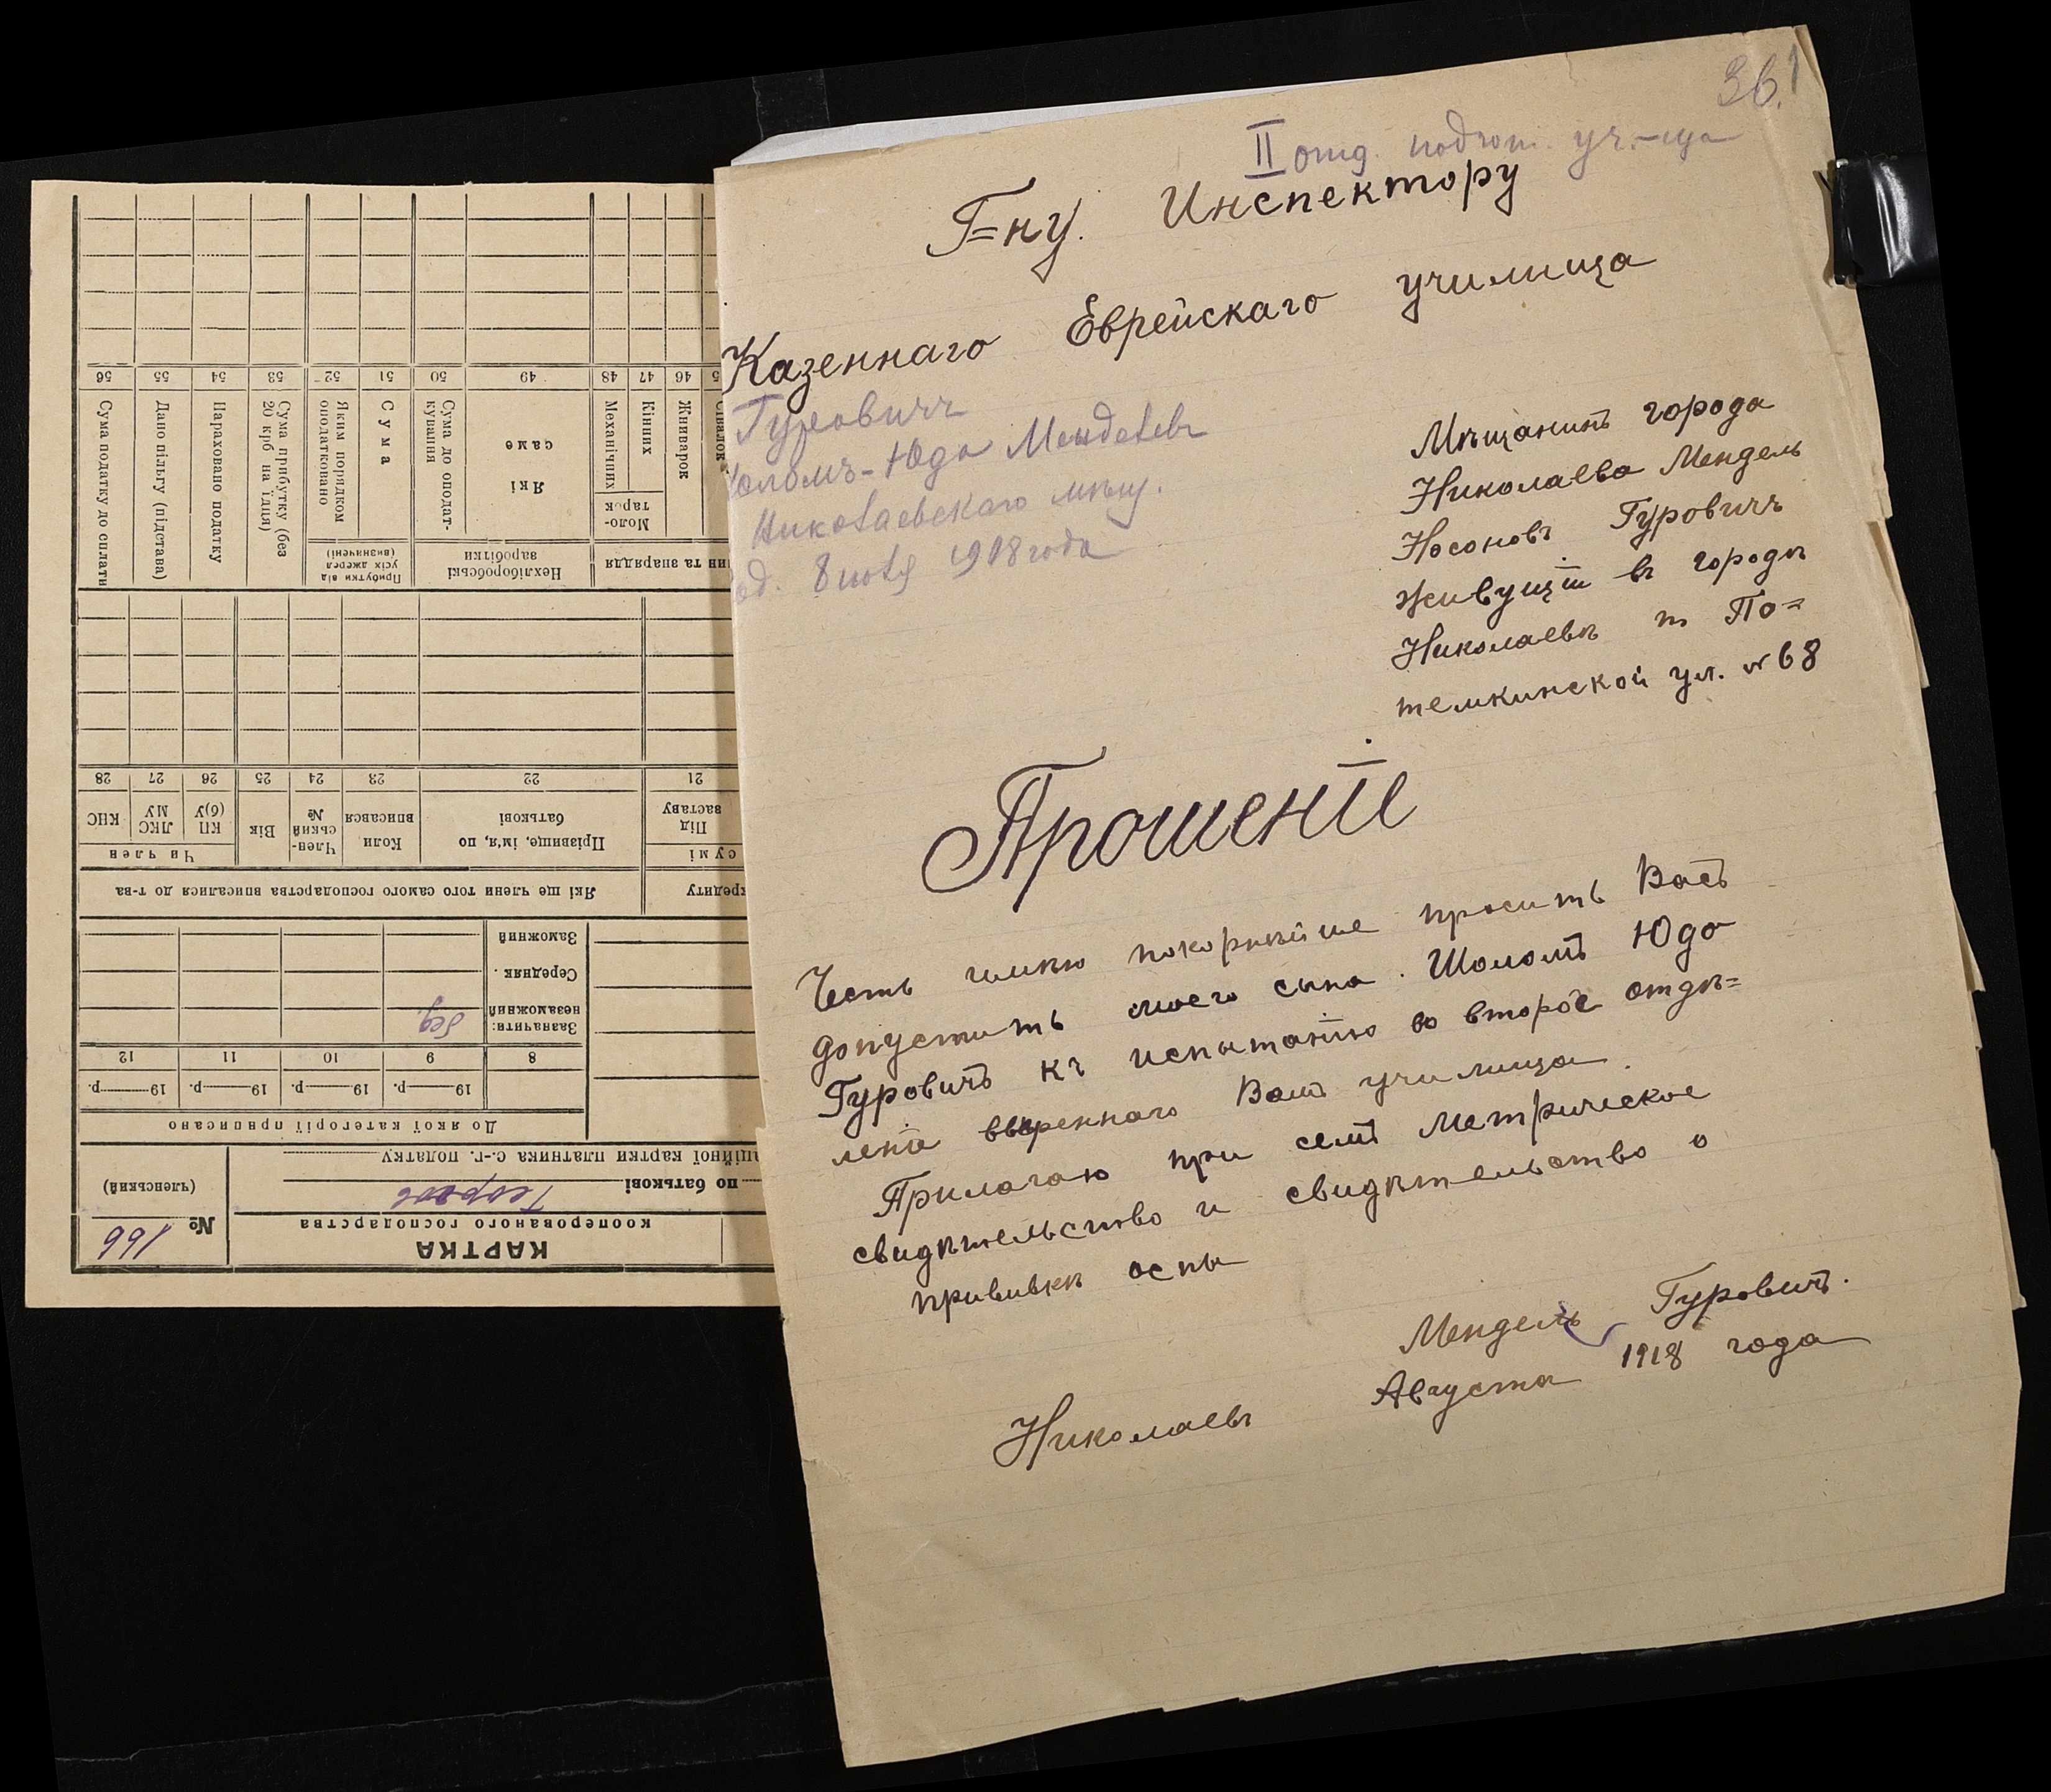 36.
II отд. подгот. уч.-ща
Г=ну. Инспектору
Казеннаго Еврейскаго училища
Гуровичъ
Шоломъ-Юда Менделевъ
Николаевскаго мѣщ.
8 1908 года
Мѣщанинъ города
Николаева Мендель
Носоновъ Гуровичъ
живущій въ городѣ
Николаевѣ по По=
темкинской ул. № 68
Прошеніе
Честь имѣю покорнѣйше просить Васъ
допустить моего сына. Шоломъ Юдо
Гуровичъ къ испытанію во второе отдѣ=
леніе ввѣреннаго Вамъ училища.
Прилагаю при семъ Метрическое
свидѣтельство и свидѣтельство о
прививкѣ оспы
Мендель Гуровичъ.
Николаевъ Августа 1918 года
КАРТКА
кооперованого господарства
№ 166
(членський)
по батькові
ційної картки платника с.-г. податку
До якої категорії приписано
19 р. 19 р. 19 р. 19 р.
8 9 10 11 12
Зазначити:
незаможний бед.
Середняк.
Заможний
кредиту
Які ще члени того самого господарства вписалися до т-ва
сумі
Під заставу
Прізвище, ім'я, по батькові
Коли вписався
Член-ський №
Вік
Чи член
КП(б)У
ЛКС МУ
КНС
21 22 23 24 25 26 27 28
ини та знаряддя
Нехліборобські заробітки
Прибутки від усіх джерел (визначені)
Жниварок
Моло-тарок
Кінних
Механічних
Які саме
Сума до оподат-кування
Сума
Яким порядком оподатковано
Сума прибутку (без 20 крб на їдця)
Нараховано податку
Дано пільгу (підстава)
Сума податку до сплати
46 47 48 49 50 51 52 53 54 55 56